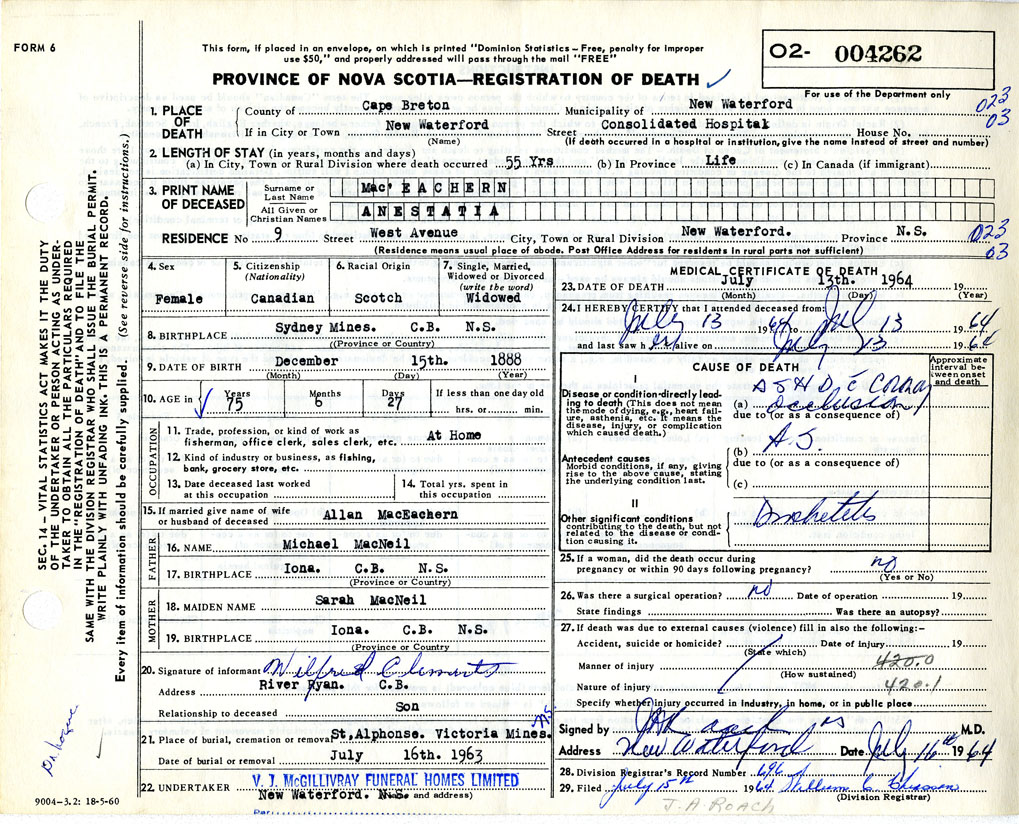 FORM 6
This form, if placed in an envelope, on which is printed "Dominion Statistics – Free, penalty for improper
use $50," and properly addressed will pass through the mail "FREE"
PROVINCE OF NOVA SCOTIA—REGISTRATION OF DEATH
O2- 004262
For use of the Department only
023
03
1. PLACE OF DEATH
County of Cape Breton Municipality of New Waterford
If in City or Town New Waterford Street Consolidated Hospital House No.
(Name) (If death occurred in a hospital or institution, give the name instead of street and number)
2. LENGTH OF STAY (in years, months and days)
(a) In City, Town or Rural Division where death occurred 55 Yrs (b) In Province Life (c) In Canada (if immigrant)
3. PRINT NAME OF DECEASED
Surname or Last Name Mac' EACHERN
All Given or Christian Names ANESTATIA
RESIDENCE No 9 Street West Avenue City, Town or Rural Division New Waterford. Province N.S.
(Residence means usual place of abode. Post Office Address for residents in rural parts not sufficient)
023
03
4. Sex
Female
5. Citizenship (Nationality)
Canadian
6. Racial Origin
Scotch
7. Single, Married, Widowed or Divorced (write the word)
Widowed
8. BIRTHPLACE Sydney Mines. C.B. N.S.
(Province or Country)
9. DATE OF BIRTH December 15th. 1888
(Month) (Day) (Year)
10. AGE in Years Months Days If less than one day old
75 6 27 hrs. or min.
OCCUPATION
11. Trade, profession or kind of work as fisherman, office clerk, sales clerk, etc. At Home
12. Kind of industry or business, as fishing, bank, grocery store, etc.
13. Date deceased last worked at this occupation
14. Total yrs. spent in this occupation
15. If married give name of wife or husband of deceased Allan MacEachern
FATHER
16. NAME Michael MacNeil
17. BIRTHPLACE Iona. C.B. N.S.
(Province or Country)
MOTHER
18. MAIDEN NAME Sarah MacNeil
19. BIRTHPLACE Iona. C.B. N.S.
(Province or Country)
20. Signature of informant Wilfred Clements
Address River Ryan. C.B.
Relationship to deceased Son
N.S.
21. Place of burial, cremation or removal St, Alphonse. Victoria Mines.
Date of burial or removal July 16th. 1963
22. UNDERTAKER V. J. McGILLIVRAY FUNERAL HOMES LIMITED
New Waterford. N.S. (Name and address)
Per
9004-3.2: 18-5-60
MEDICAL CERTIFICATE OF DEATH
23. DATE OF DEATH July 13th. 1964 19
(Month) (Day) (Year)
24. I HEREBY CERTIFY that I attended deceased from:
July 13 1964 to July 13 1964
and last saw her alive on July 13 1964
CAUSE OF DEATH
Approximate interval between onset and death
I
Disease or condition directly leading to death (This does not mean the mode of dying, e.g., heart failure, asthenia, etc. It means the disease, injury, or complication which caused death.)
ASHD c Coronary
(a) occlusion
due to (or as a consequence of)
Antecedent causes
Morbid conditions, if any, giving rise to the above cause, stating the underlying condition last.
(b) A.S.
due to (or as a consequence of)
(c)
II
Other significant conditions contributing to the death, but not related to the disease or condition causing it.
Diabetes
25. If a woman, did the death occur during
pregnancy or within 90 days following pregnancy? no
(Yes or No)
26. Was there a surgical operation? no Date of operation 19
State findings Was there an autopsy?
27. If death was due to external causes (violence) fill in also the following:–
Accident, suicide or homicide? Date of injury 19
(State which)
Manner of injury 420.0
(How sustained)
Nature of injury 420.1
Specify whether injury occurred in industry, in home, or in public place
Signed by M.D.
Address New Waterford Date July 16th 1964
28. Division Registrar's Record Number 696
29. Filed July 15th 1964
(Division Registrar)
J. A. ROACH
SEC. 14 – VITAL STATISTICS ACT MAKES IT THE DUTY
OF THE UNDERTAKER OR PERSON ACTING AS UNDER-
TAKER TO OBTAIN ALL THE PARTICULARS REQUIRED
IN THE "REGISTRATION OF DEATH" AND TO FILE THE
SAME WITH THE DIVISION REGISTRAR WHO SHALL ISSUE THE BURIAL PERMIT.
WRITE PLAINLY WITH UNFADING INK. THIS IS A PERMANENT RECORD.
Every item of information should be carefully supplied. (See reverse side for instructions.)